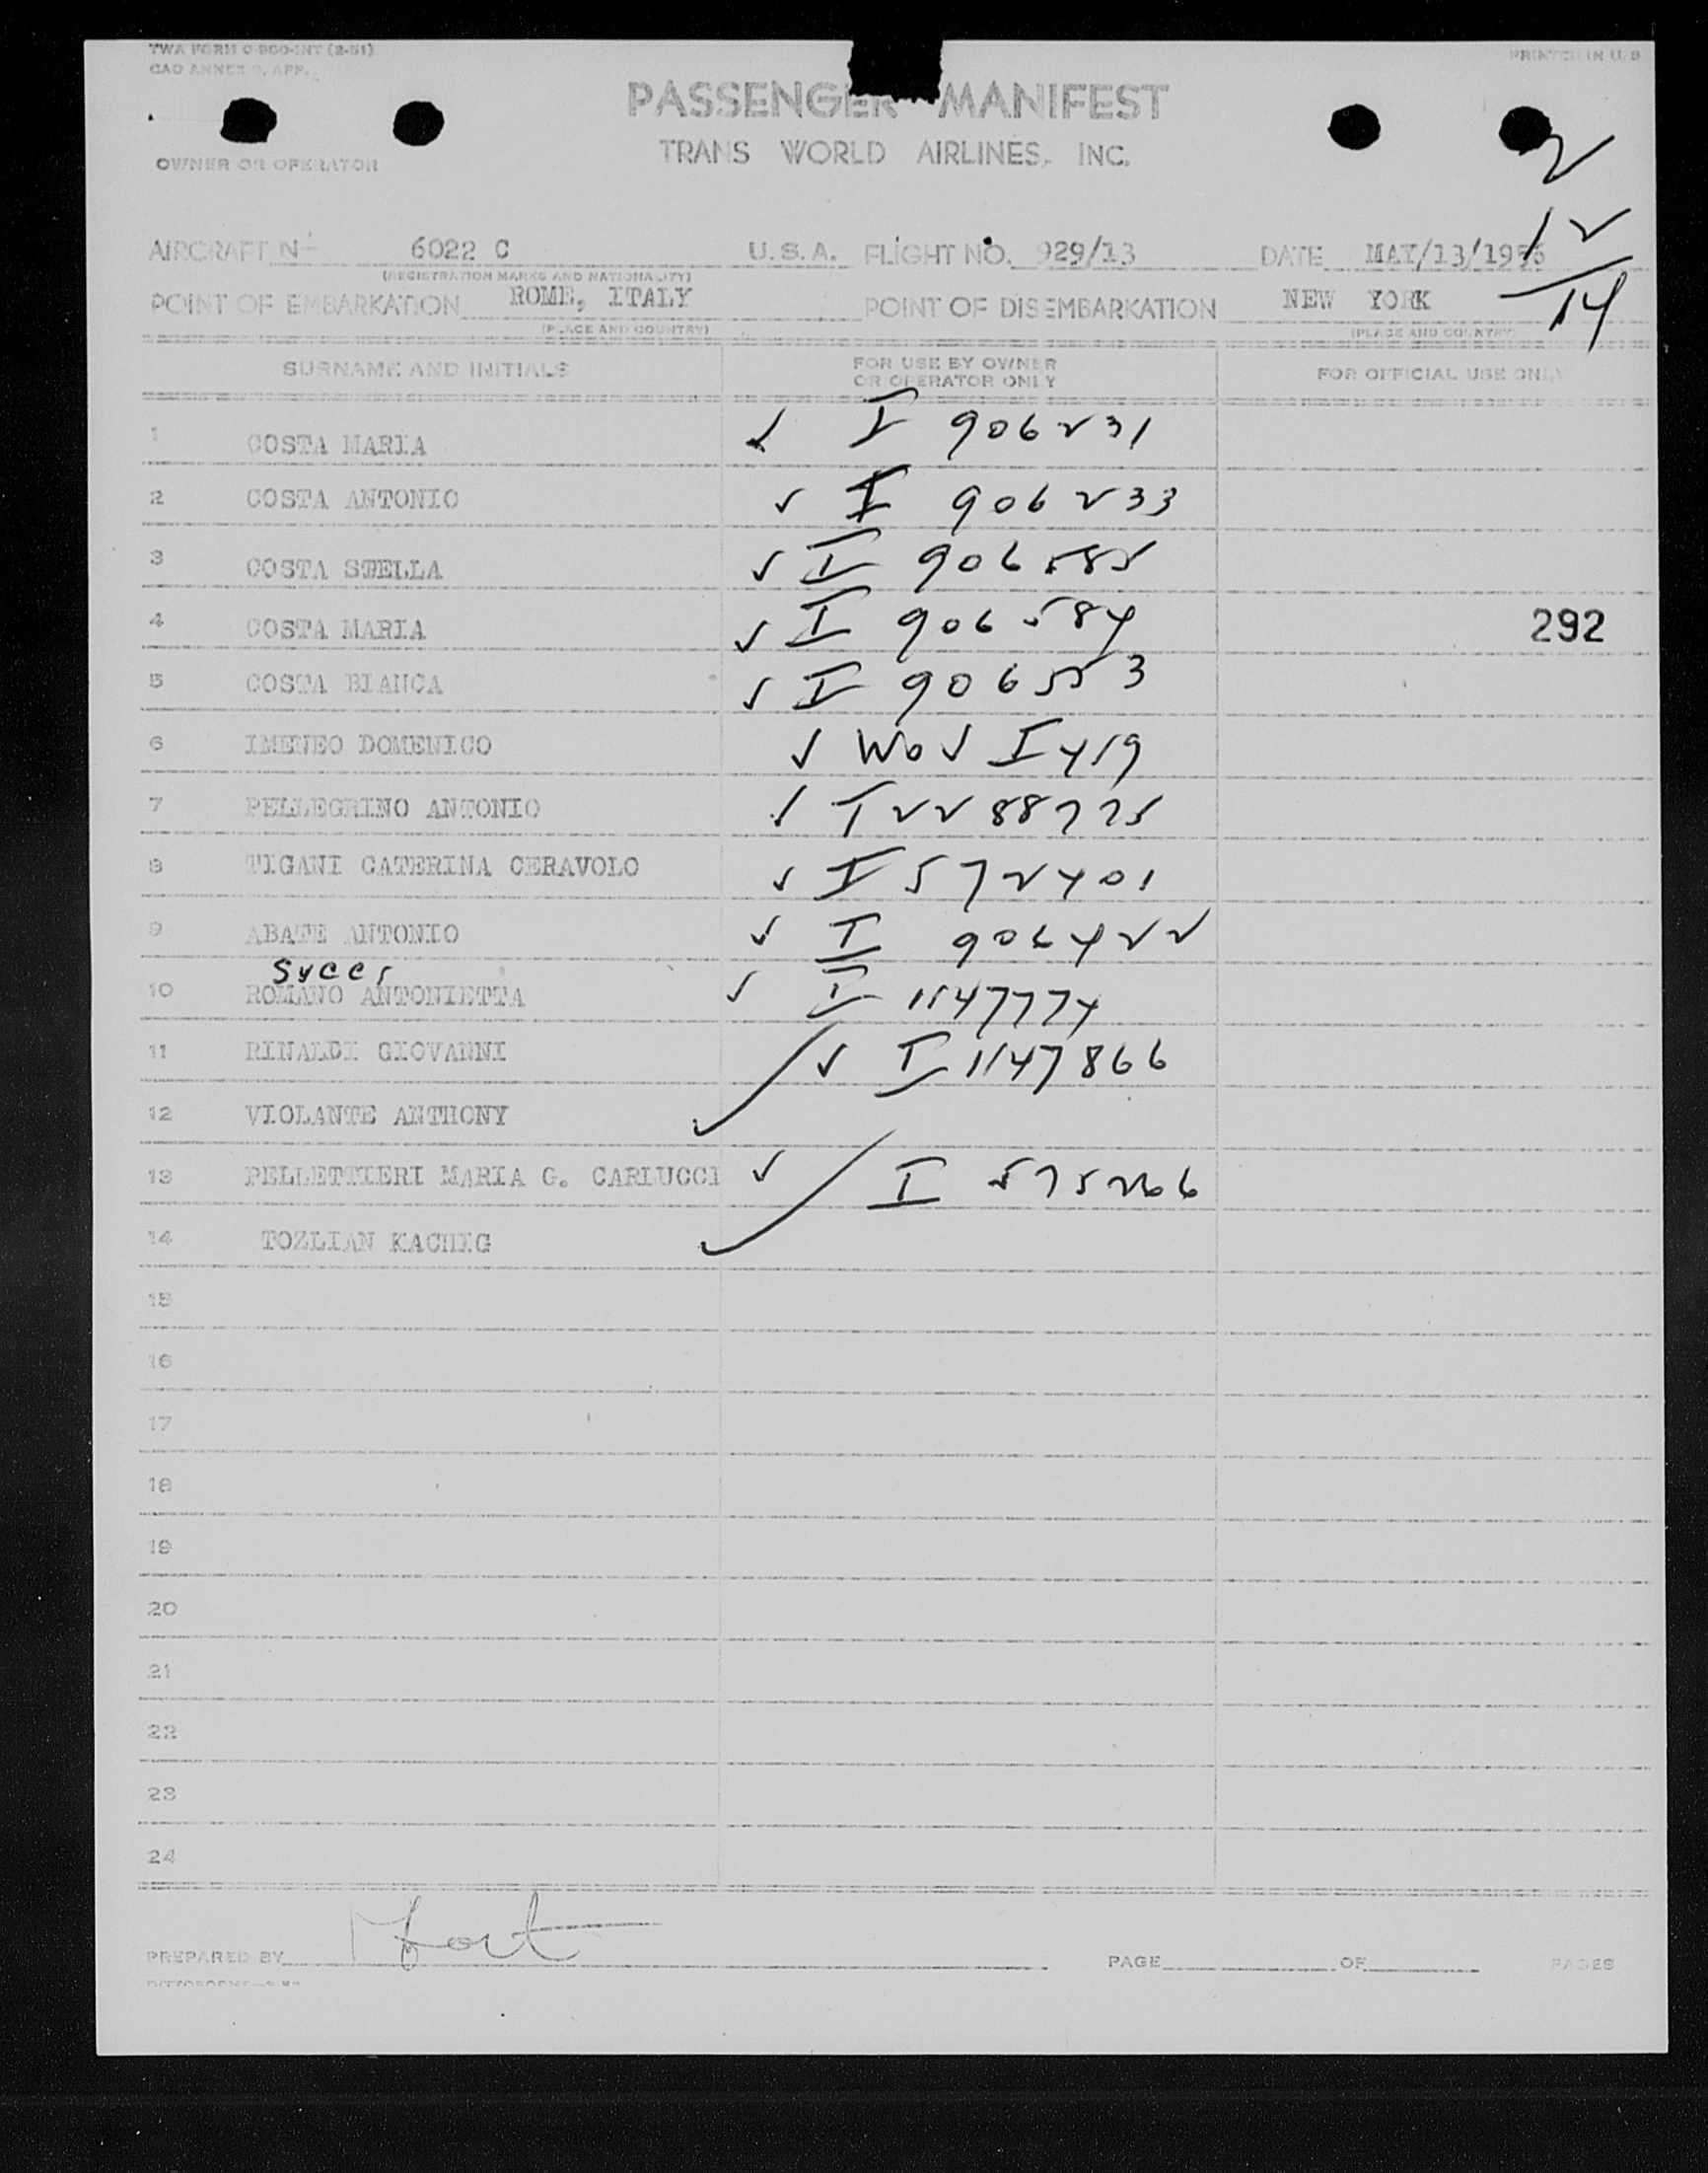 TWA FORM O-800-INT (2-51)
PRINTED IN U. S
CAO ANNEX 9, APP.
PASSENGER MANIFEST
TRANS WORLD AIRLINES, INC.
OWNER OR OPERATOR
2
12
14
AIRCRAFT No 6022 C U.S.A. FLIGHT NO. 929/13 DATE MAY/13/1956
(REGISTRATION MARKS AND NATIONALITY)
POINT OF EMBARKATION ROME, ITALY POINT OF DISEMBARKATION NEW YORK
(PLACE AND COUNTRY) (PLACE AND COUNTRY)
SURNAME AND INITIALS FOR USE BY OWNER OR OPERATOR ONLY FOR OFFICIAL USE ONLY
1 COSTA MARIA ✓ I 906231
2 COSTA ANTONIO ✓ I 906233
3 COSTA STELLA ✓ I 906585
4 COSTA MARIA ✓ I 906584 292
5 COSTA BIANCA ✓ I 906553
6 IMENEO DOMENICO ✓ I 419
7 PELLEGRINO ANTONIO ✓ I 2288775
8 TIGANI CATERINA CERAVOLO ✓ I 572401
9 ABATE ANTONIO ✓ I 906422
10 ROMANO ANTONIETTA ✓ I 1147774
11 RINALDI GIOVANNI ✓ I 1147866
12 VIOLANTE ANTHONY ✓
13 PELLETTIERI MARIA G. CARLUCCI ✓ I 575266
14 TOZLIAN KACHIG ✓
15
16
17
18
19
20
21
22
23
24
PREPARED BY PAGE OF PAGES